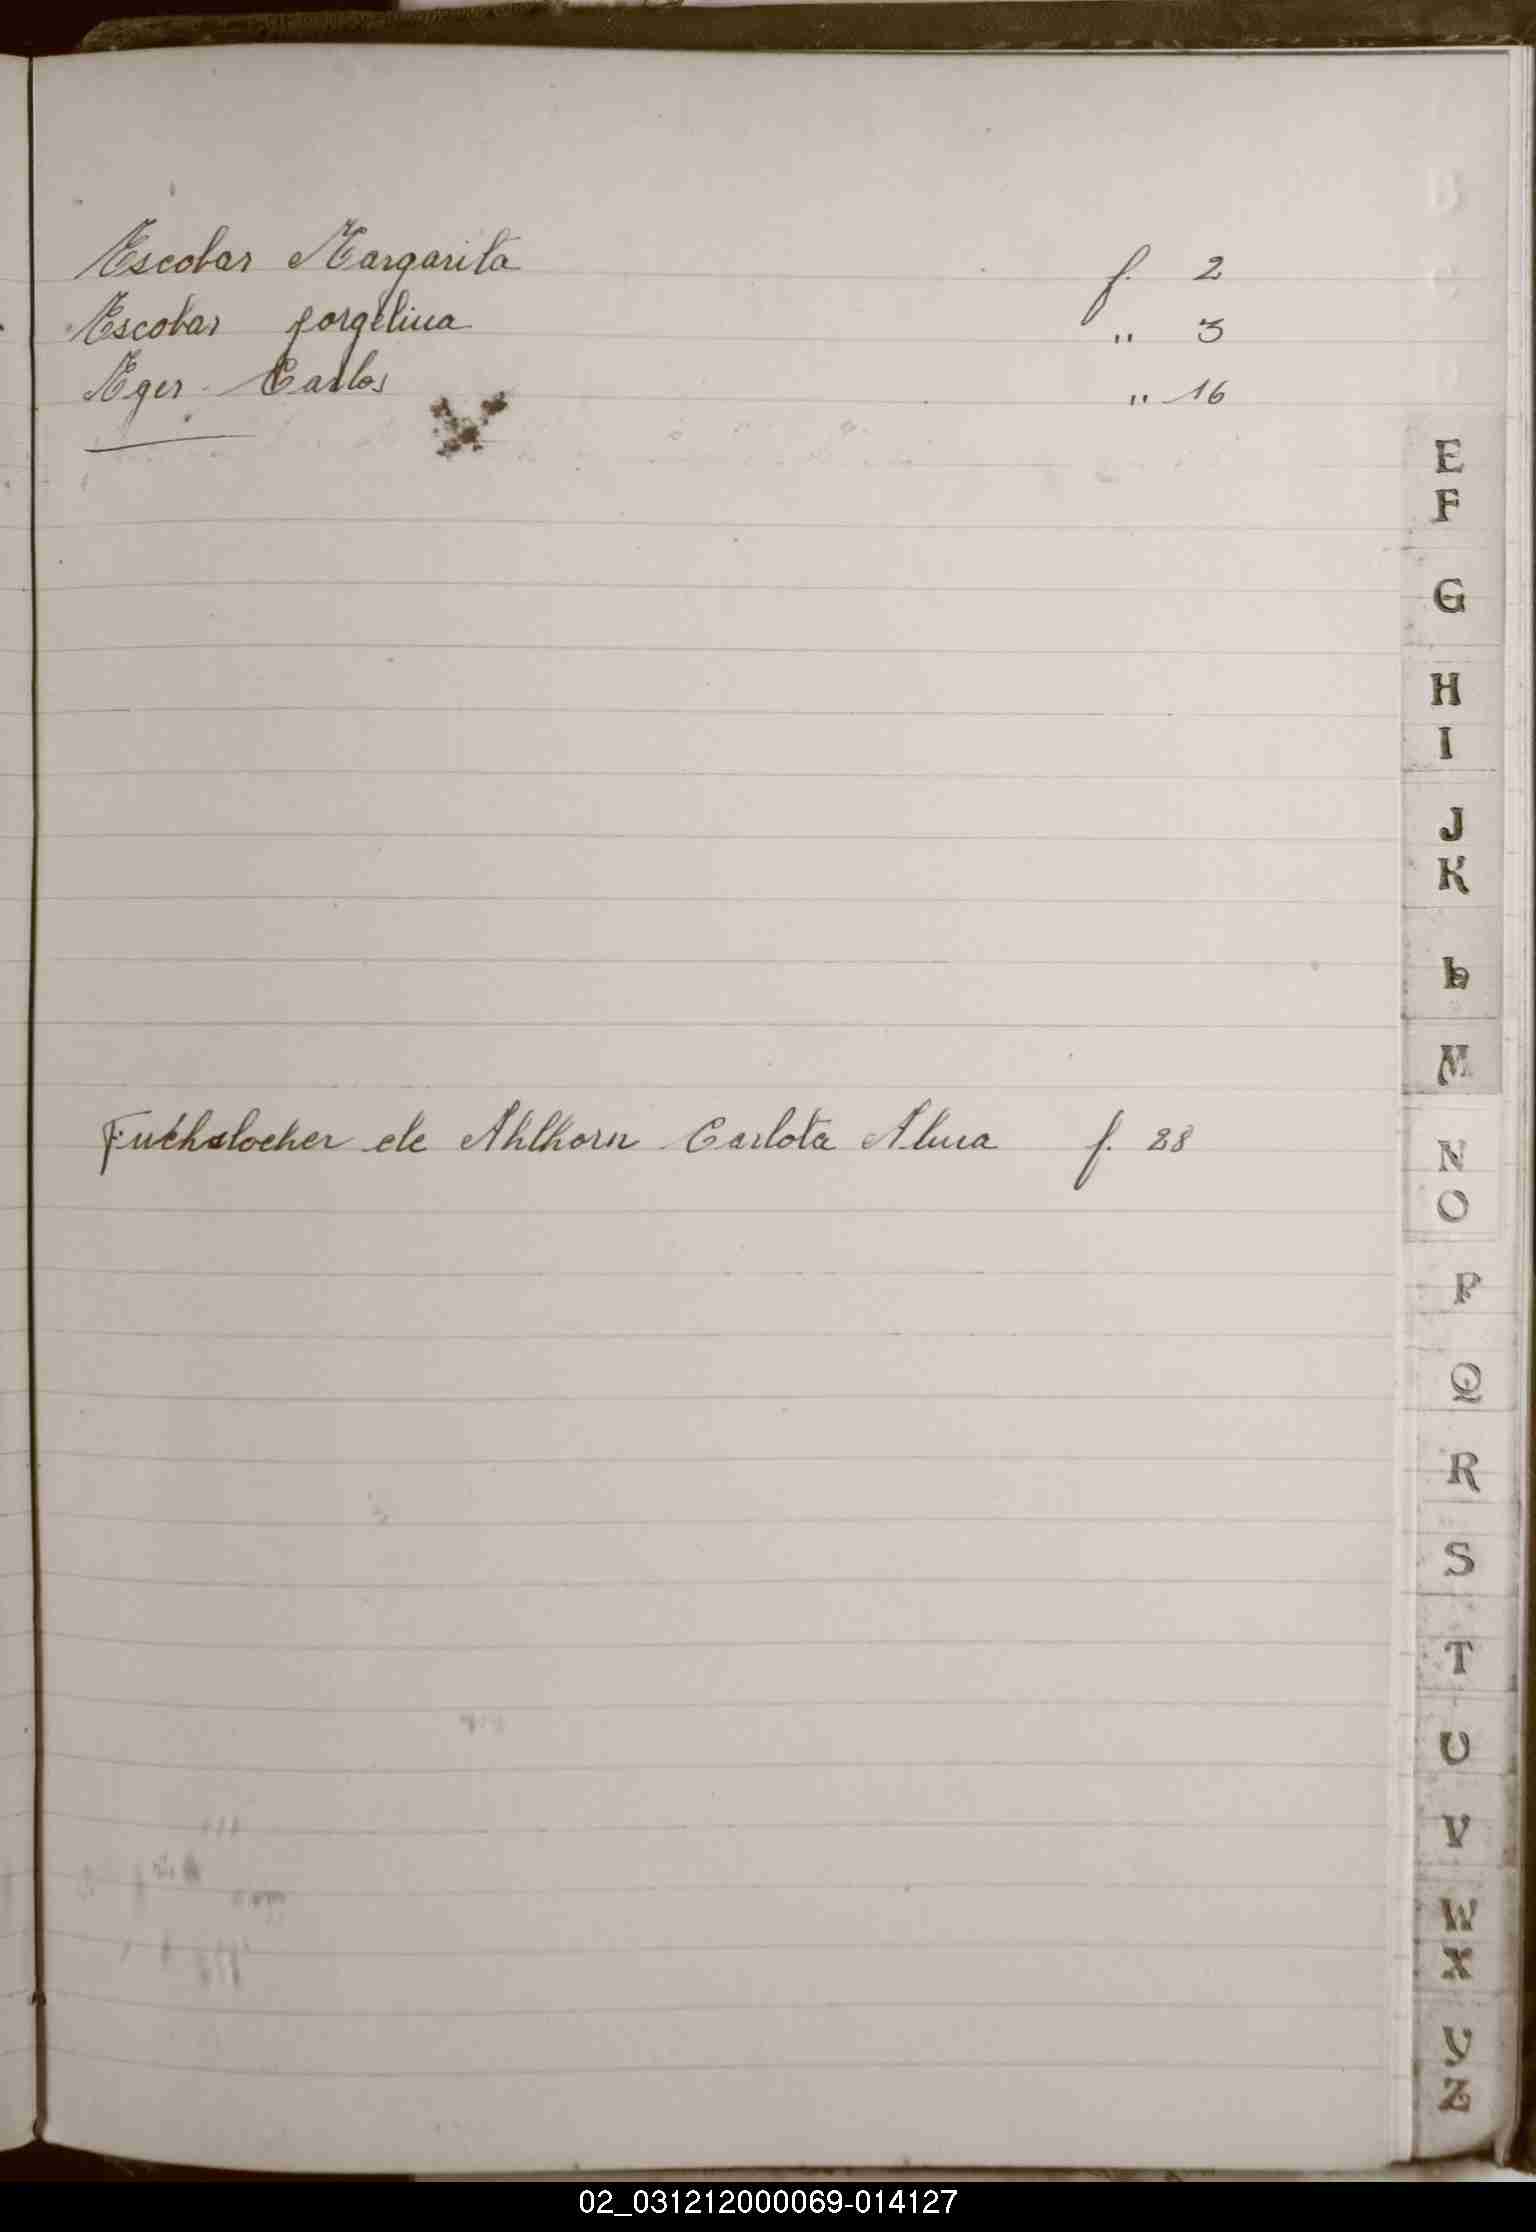 Escobar Margarita f. 2
Escobar Jorgelina " 3
Eger Carlos " 16
E
F
G
H
I
J
K
L
M
Fuchslocher de Ahlhorn Carlota Alma f. 28
N
O
P
Q
R
S
T
U
V
W
X
Y
Z
02_031212000069-014127